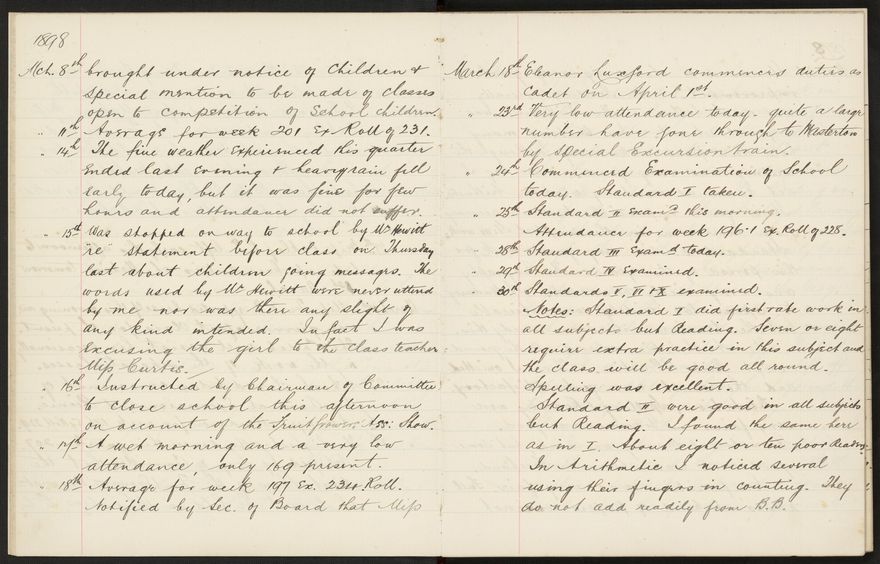 1898
Mch. 8th brought under notice of Children &
special mention to be made of classes
open to competition of School children.
" 11th Average for week 201 Ex Roll of 231.
" 14th The fine weather experienced this quarter
ended last evening & heavy rain fell
early today, but it was fine for few
hours and attendance did not suffer.
" 15th Was stopped on way to school by Mr Hewitt
"re" statement before class on Thursday
last about children going messages. The
words used by Mr Hewitt were never uttered
by me nor was there any slight of
any kind intended. In fact I was
excusing the girl to the class teacher
Miss Curtis.
" 16th Instructed by Chairman of Committee
to close school this afternoon
on account of the Fruitgrowers Ass: Show.
" 17th A wet morning and a very low
attendance, only 169 present.
" 18th Average for week 197 Ex. 234 Roll.
Notified by Sec. of Board that Miss
March 18th Eleanor Luxford commences duties as
cadet on April 1st.
" 23rd Very low attendance today - quite a large
number have gone through to Masterton
by Special Excursion train.
" 24th Commenced Examination of School
today. Standard I taken.
" 25th Standard II examd this morning.
Attendance for week 196.1 Ex. Roll of 228.
" 28th Standard III Examd today.
" 29th Standard IV Examined.
" 30th Standards V, VI & X examined.
Notes: Standard I did first rate work in
all subjects but Reading. Seven or eight
require extra practice in this subject and
the class will be good all round.
Spelling was excellent.
Standard II were good in all subjects
but Reading. I found the same here
as in I. About eight or ten poor readers.
In Arithmetic I noticed several
using their fingers in counting. They
do not add readily from B.B.